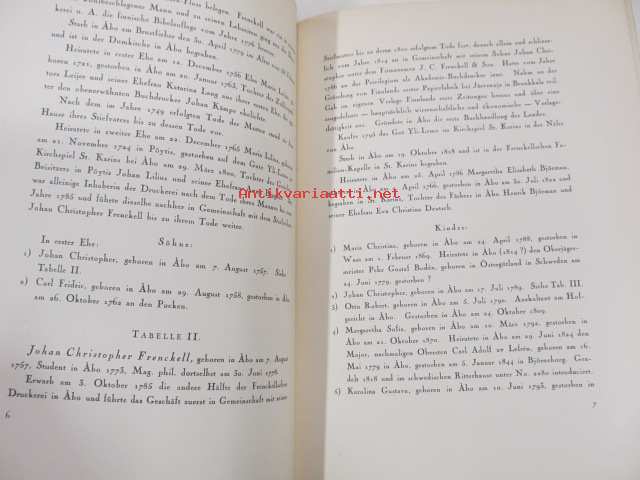 kerei u. a. die finnische Bibelauflage vom Jahre 1776 heraus.
Starb in Åbo am Brustfieber den 30. April 1779 in Åbo und ist
in der Domkirche in Åbo begraben.
Heiratete in erster Ehe am 12. December 1756 Eba Maria Leijer,
boren 1721, gestorben am 20. Januar 1763, Tochter des
Leijer und seiner Ehefrau Katarina Lang aus ihrer ersten Ehe
der obenerwähnten Buchdrucker Johan Kämpe ehelichte.
Nach dem im Jahre 1749 erfolgten Tode der Mutter stand er dem
Haus ihres Stiefvaters bis zu dessen Tode vor.
Heiratete in zweiter Ehe am 22. December 1765 Maria Lilius,
am 21. November 1724 in Pöytis, gestorben auf dem Gute Yl
Kirchspiel St. Karins bei Åbo am 29. März 1800, Tochter des
Beisitzers in Pöytis Johan Lilius und seiner Ehefrau
war alleinige Inhaberin der Druckerei nach dem Tode ihres Mannes bis zum
Jahre 1785 und führte dieselbe nachher in Gemeinschaft mit dem Stiefsohn
Johan Christopher Frenckell bis zu ihrem Tode weiter.
Söhne:
In erster Ehe:
1) Johan Christopher, geboren in Åbo am 7. August 1757. Siehe
Tabelle II.
2) Carl Fridric, geboren in Åbo am 29. August 1758, gestorben in Åbo
am 26. Oktober 1762 an den Pocken.
TABELLE II.
Johan Christopher Frenckell, geboren in Åbo am 7. August
1757, Student in Åbo 1773, Mag. phil. dortselbst am 30. Juni 1776.
Erwarb am 3. Oktober 1785 die andere Hälfte der Frenckellschen
Druckerei in Åbo und führte das Geschäft zuerst in Gemeinschaft mit seiner
6
Stiefmutter bis zu deren 1800 erfolgtem Tode fort, danach allein und schliess-
lich vom Jahre 1814 an in Gemeinschaft mit seinem Sohne Johan Chri-
stopher unter dem Firmennamen J. C. Frenckell & Son. Hatte vom Jahre
1786 an Privilegium als Akademie-Buchdrucker inne. Nahm an der
Gründung von Finlands erster Papierfabrik bei Järvenoja in Brunkkala teil.
Gab im eigenen Verlage Finnlands erste Zeitungen heraus und übte eine
ausgedehnte — hauptsächlich wissenschaftliche und ökonomische — Verlags-
tätigkeit aus. Gründete in Åbo die erste Buchhandlung des Landes.
Kaufte 1796 das Gut Yl-Lemu im Kirchspiel St. Karins in der Nähe
von Åbo.
Starb in Åbo am 19. Oktober 1818 und ist in der Frenckellschen Fa-
milien-Kapelle in St. Karins begraben.
Heiratete in Åbo am 28. April 1786 Margaretha Elisabeth Björman,
geboren in Åbo am April 1766, gestorben in Åbo am 30. Juli 1822 und
begraben in St. Karins, Tochter des Färbers in Åbo Henrik Björman und
seiner Ehefrau Eva Christina Deutsch.
Kinder:
1) Maria Christina, geboren in Åbo am 24. April 1788, gestorben in
Wasa am 1. Februar 1869. Heiratete in Åbo (1814 ?) den Oberjäger-
meister Pehr Gustaf Bodén, geboren in Östergötland in Schweden am
24. Juni 1779, gestorben ?
2) Johan Christopher, geboren in Åbo am 17. Juli 1789. Siehe Tab. III.
3) Otto Robert, geboren in Åbo am 5. Juli 1790. Auskultant am Hof-
gericht in Åbo. Gestorben in Åbo am 24. Oktober 1809.
4) Margaretha Sofia, geboren in Åbo am 10. März 1792, gestorben in
Åbo am 21. Oktober 1870. Heiratete in Åbo am 29. Juni 1824 den
Major, nachmaligen Obersten Carl Adolf av Lefrén, geboren am 16.
Mai 1779 in Åbo, gestorben am 5. Januar 1844 in Björneborg. Gea-
delt 1818 und im schwedischen Ritterhause unter No. 2280 introduciert.
5) Karolina Gustava, geboren in Åbo am 10. Juni 1793, gestorben in
7
Antikvariaatti.net